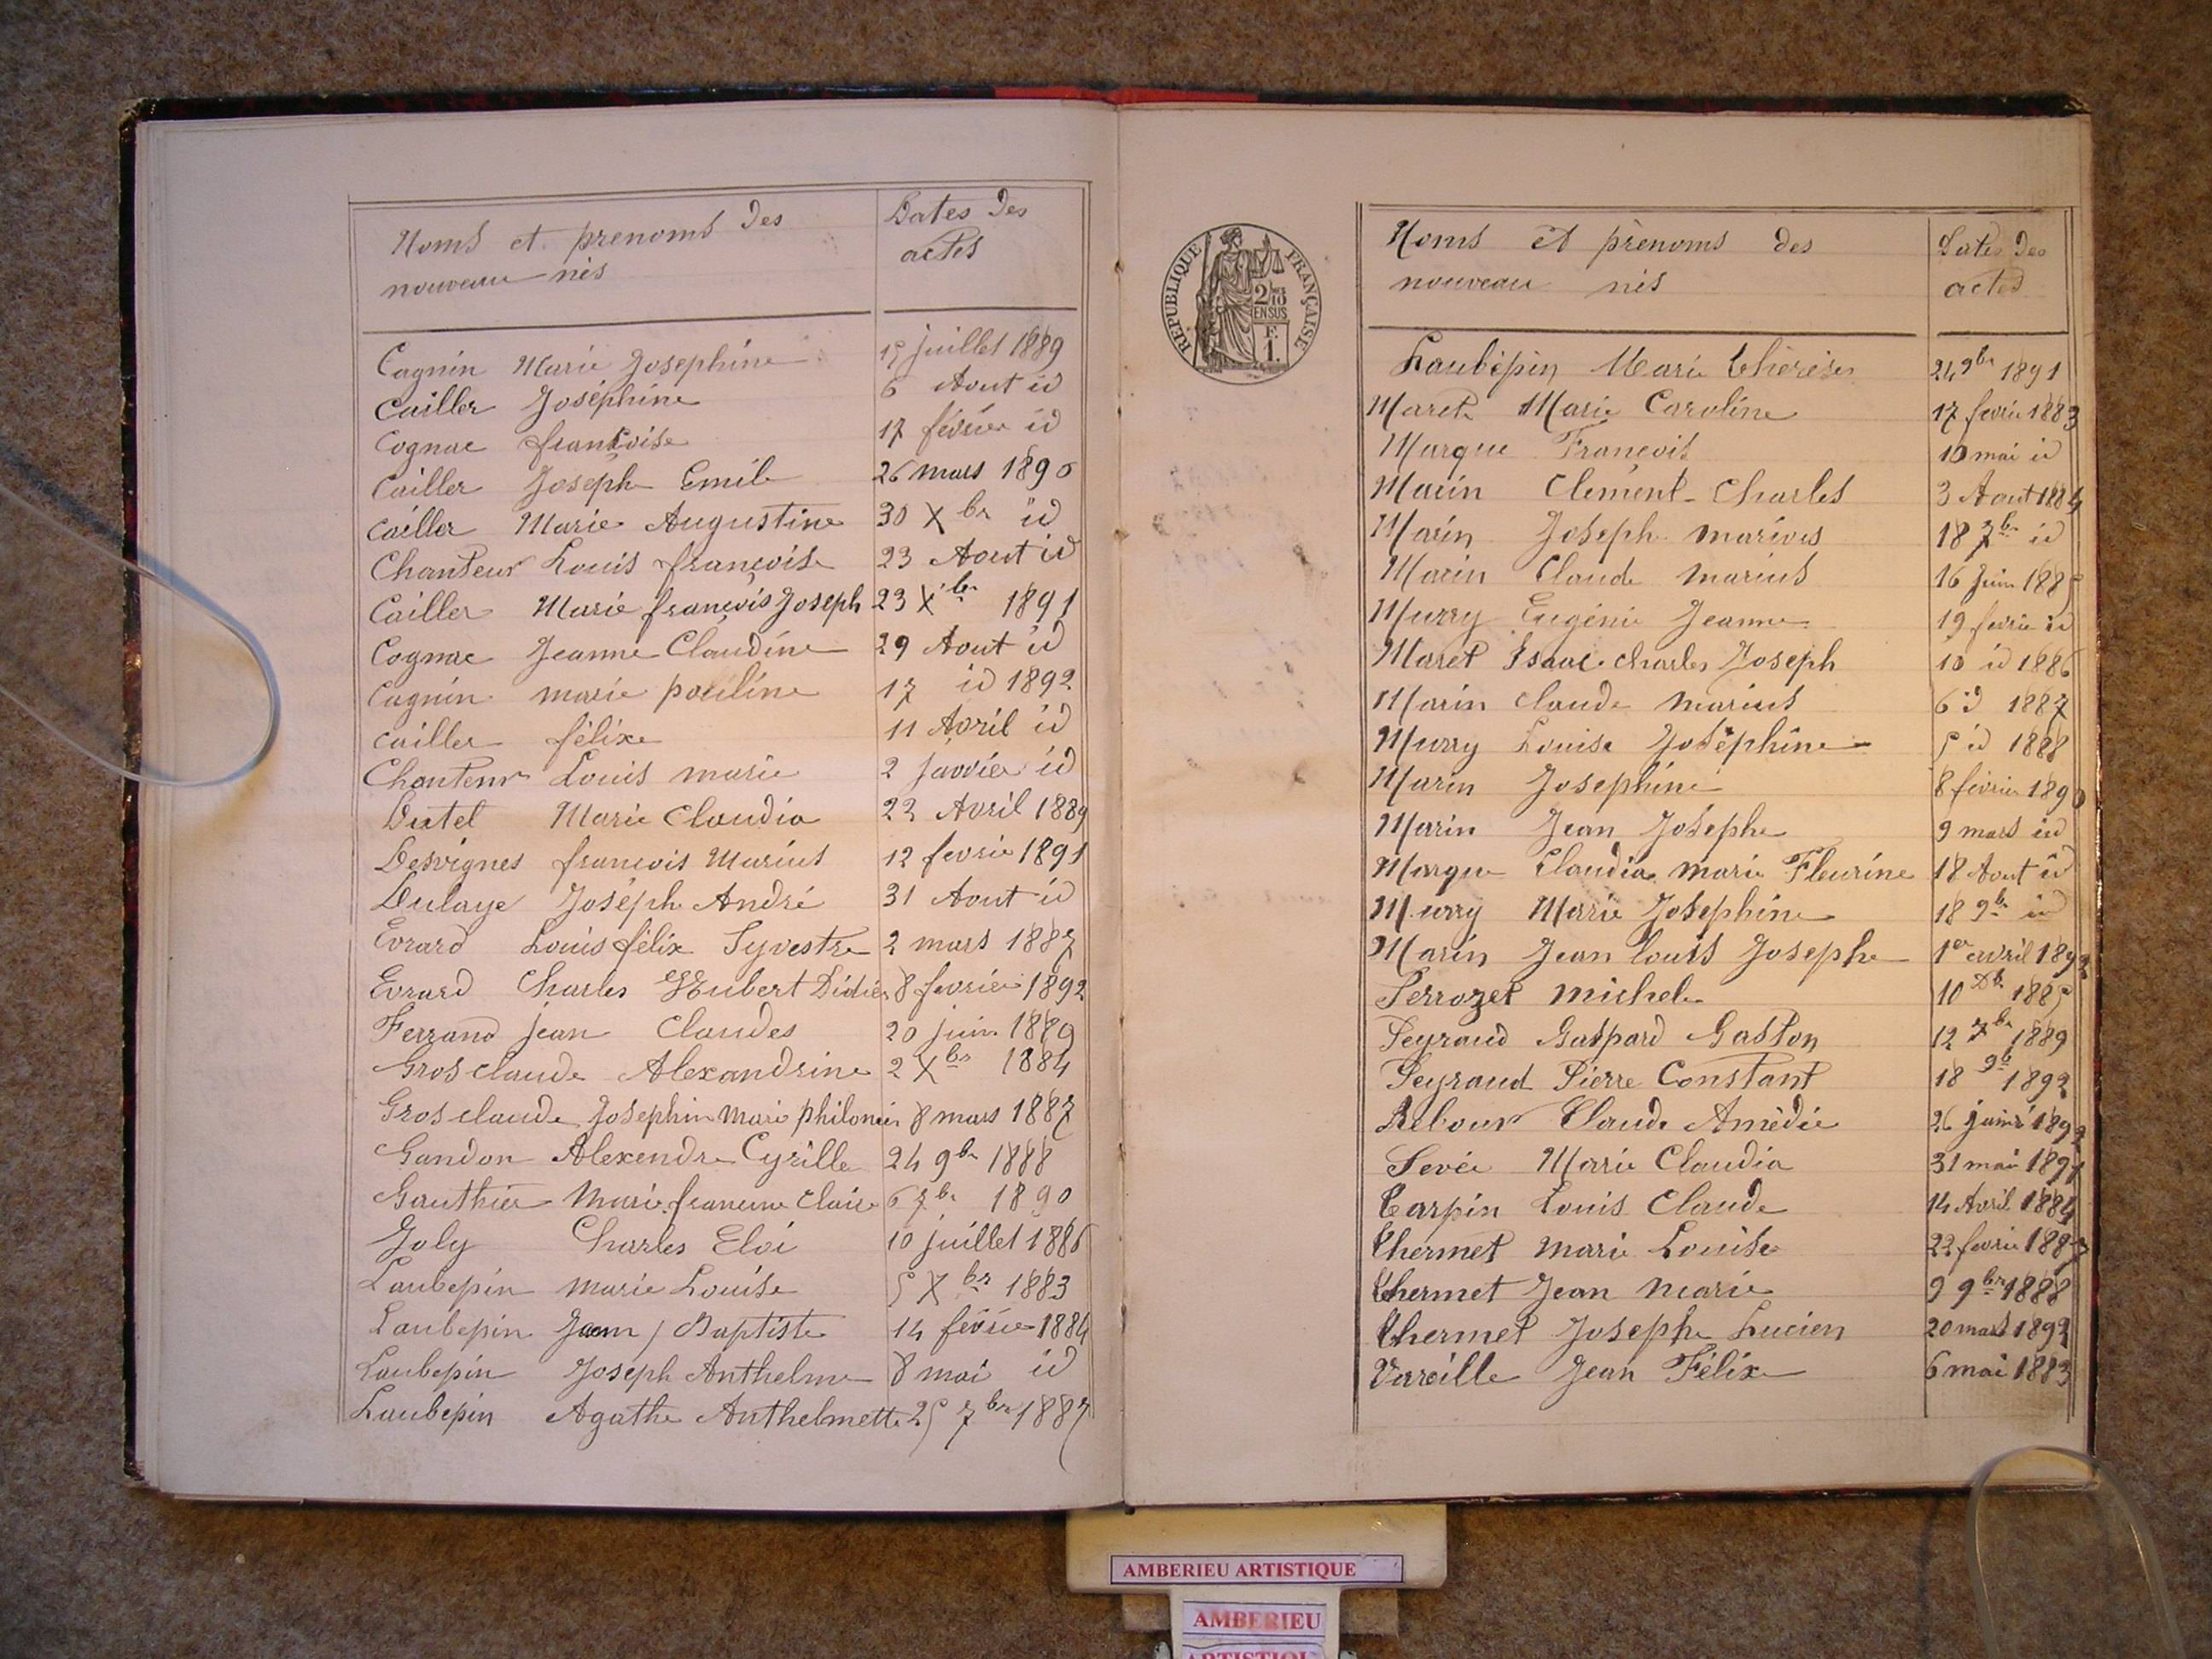 Noms et prenoms des
nouveau nés
Dates des
actes
Cagnin Marie Josephine 15 juillet 1889
Cailler Joséphine 6 Aout id
Cognac francoise 17 février id
Cailler Joseph Emile 26 mars 1890
Cailler Marie Augustine 30 Xbre id
Chanteur Louis francoise 23 Aout id
Cailler Marie francois Joseph 23 Xbre 1891
Cognac Jeanne Claudine 29 Aout id
Cagnin marie pauline 17 id 1892
Cailler félixe 11 Avril id
Chanteur Louis marie 2 janvier id
Dutel Marie Claudia 22 Avril 1889
Desvignes francois Marius 12 fevrie 1891
Dulaye Joséph André 31 Aout id
Evrard Louis félix Syvestre 2 mars 1887
Evrard Charles Hubert Didier 8 fevrier 1892
Ferrand jean Claudes 20 juin 1889
Gros claude Alexandrine 2 Xbre 1884
Gros claude Josephin Marie 8 mars 1887
Gandon Alexendre Cyrille 24 9bre 1888
Gauthier Marie francine Claire 6 7bre 1890
Joly Charles Eloi 10 juillet 1886
Laubepin Marie Louise 5 Xbre 1883
Laubepin Jean / Baptiste 14 février 1884
Laubepin Joseph Anthelme 8 mai id
Laubepin Agathe Anthelmette 25 7bre 1887
REPUBLIQUE FRANÇAISE
2/10
EN SUS
F.
1.
Noms et prènoms des
nouveau nés
Dates des
actes
Laubépin Marie thérèse 24 9bre 1891
Maret Marie Caroline 17 fevrie 1883
Marque Francois 10 mai id
Marin Clement-Charles 3 Aout 1884
Marin Joseph marius 18 7bre id
Marin Claude marius 16 Juin 1885
Murry Eugénie Jeanne 19 fevrie id
Maret Isaac charles Joseph 10 id 1886
Marin claude marius 6 id 1887
Murry Louise Joséphine 5 id 1888
Marin Josephine 8 février 1890
Marin Jean Josephe 9 mars id
Marque Claudia marie Fleurine 18 Aout id
Murry Marie Josephine 18 9bre id
Marin Jean louis Josephe 1er avril 1892
Perrozet michel 10 Xbre 1885
Peyraud Gaspard Gaston 12 7bre 1889
Peyraud Pierre Constant 18 9b 1892
Rebour Claude Amédée 26 1892
Sevée Marie Claudia 31 mai 1891
Tarpin Louis Claude 14 Avril 1884
thermet marie Louise 22 fevrie 1887
thermet Jean marie 9 9bre 1888
thermet Josephe Lucien 20 mars 1892
Vareille Jean Félix 6 mai 1883
AMBERIEU ARTISTIQUE
AMBERIEU
ARTISTIQUE